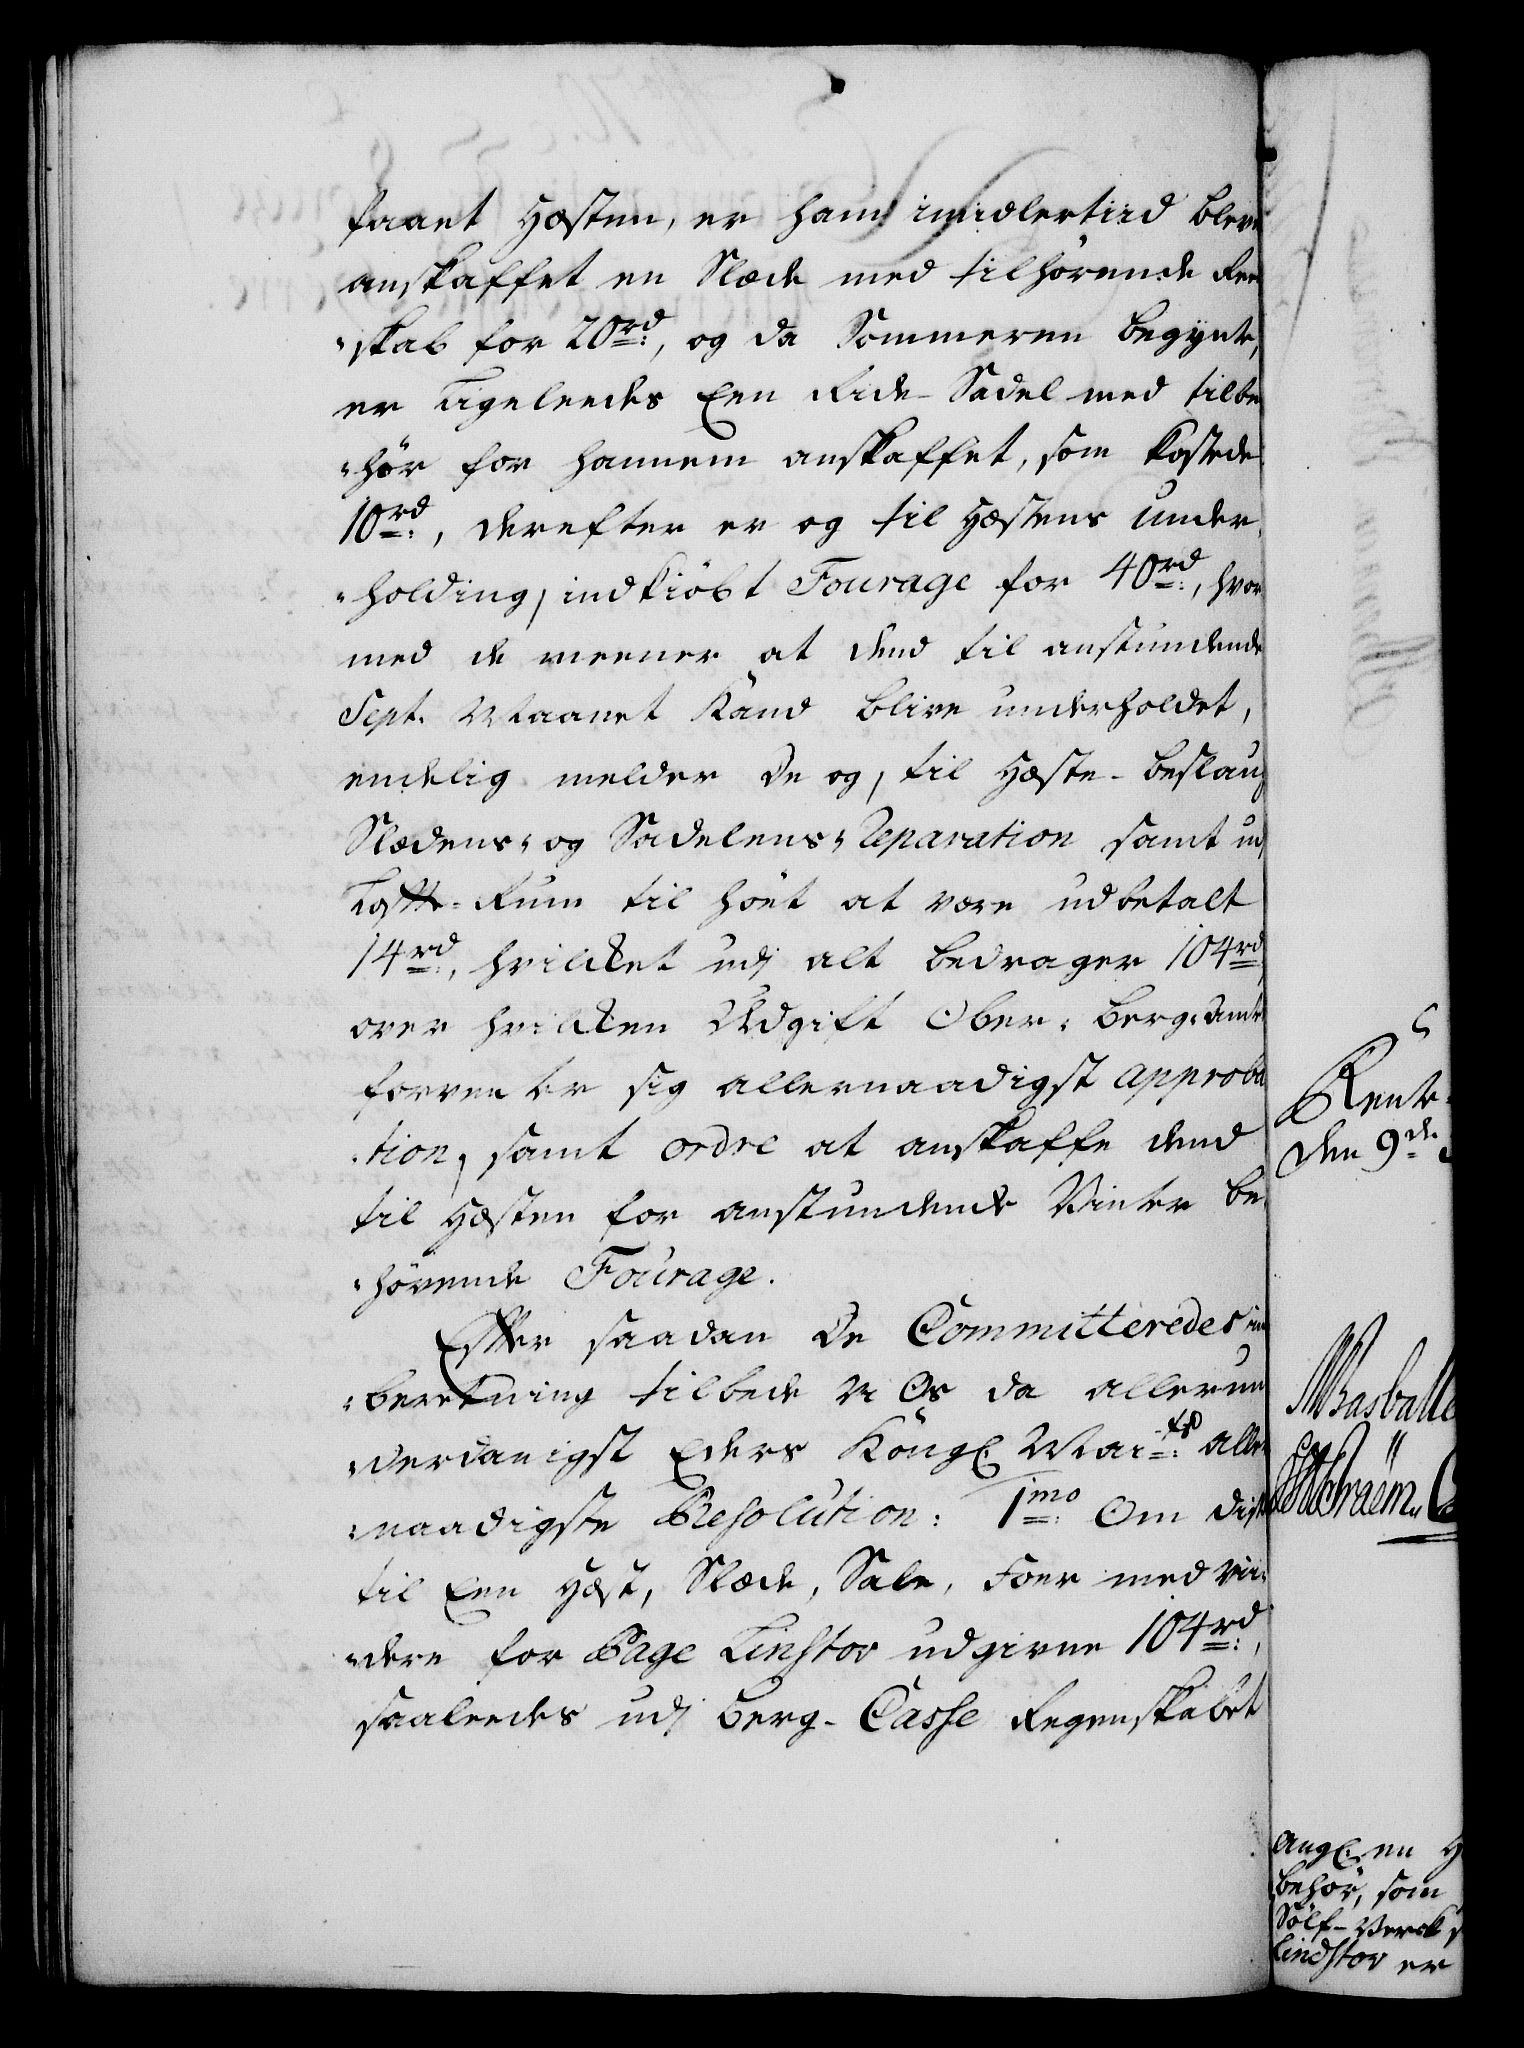 faaet Hæsten, er ham imidlertiid bleve
anskaffet en Slæde med tilhörende Ree
-skab for 20 rd:, og da Sommeren begynte,
er ligeleedes Een Ride-Sadel med tilbe
-hör for hannem anskaffet, som kostede
10 rd:, derefter er og til Hæstens under-
-holding, indkiöbt Fourage for 40 rd:, hvor
med de meener at dend til anstundende
Sept. Maanet kand blive underholdet,
endelig melder de og, til Hæste-beslaug
Slædens- og Sadelens-Reparation samt udj
Loftte-Rum til höet at være udbetalt
14 rd:, hvilcket udj alt bedrager 104 rd
over hvilcken Udgift Ober-Berg-Amte
forventer sig allernaadigst approba
-tion, samt ordre at anskaffe dend
til Hæsten for anstundende Vinter be-
-hövende Fourage.
Efter saadan De Committeredes in
-beretning tilbede vi Os da allerun
-derdanigst Eders Kongl. Mai-ts: aller
-naadigste Resolution: 1mo Om diste
til Een Hæst, Slæde, Sale, Foer med vii-
-dere for Page Linstov udgivne 104 rd:,
saaleedes udj Berg-Casse Regenskabet
Rente-
den 9de
Basballe
Fraem
Angl. en H
behör, som
Sölf-Verck
Lindstov er